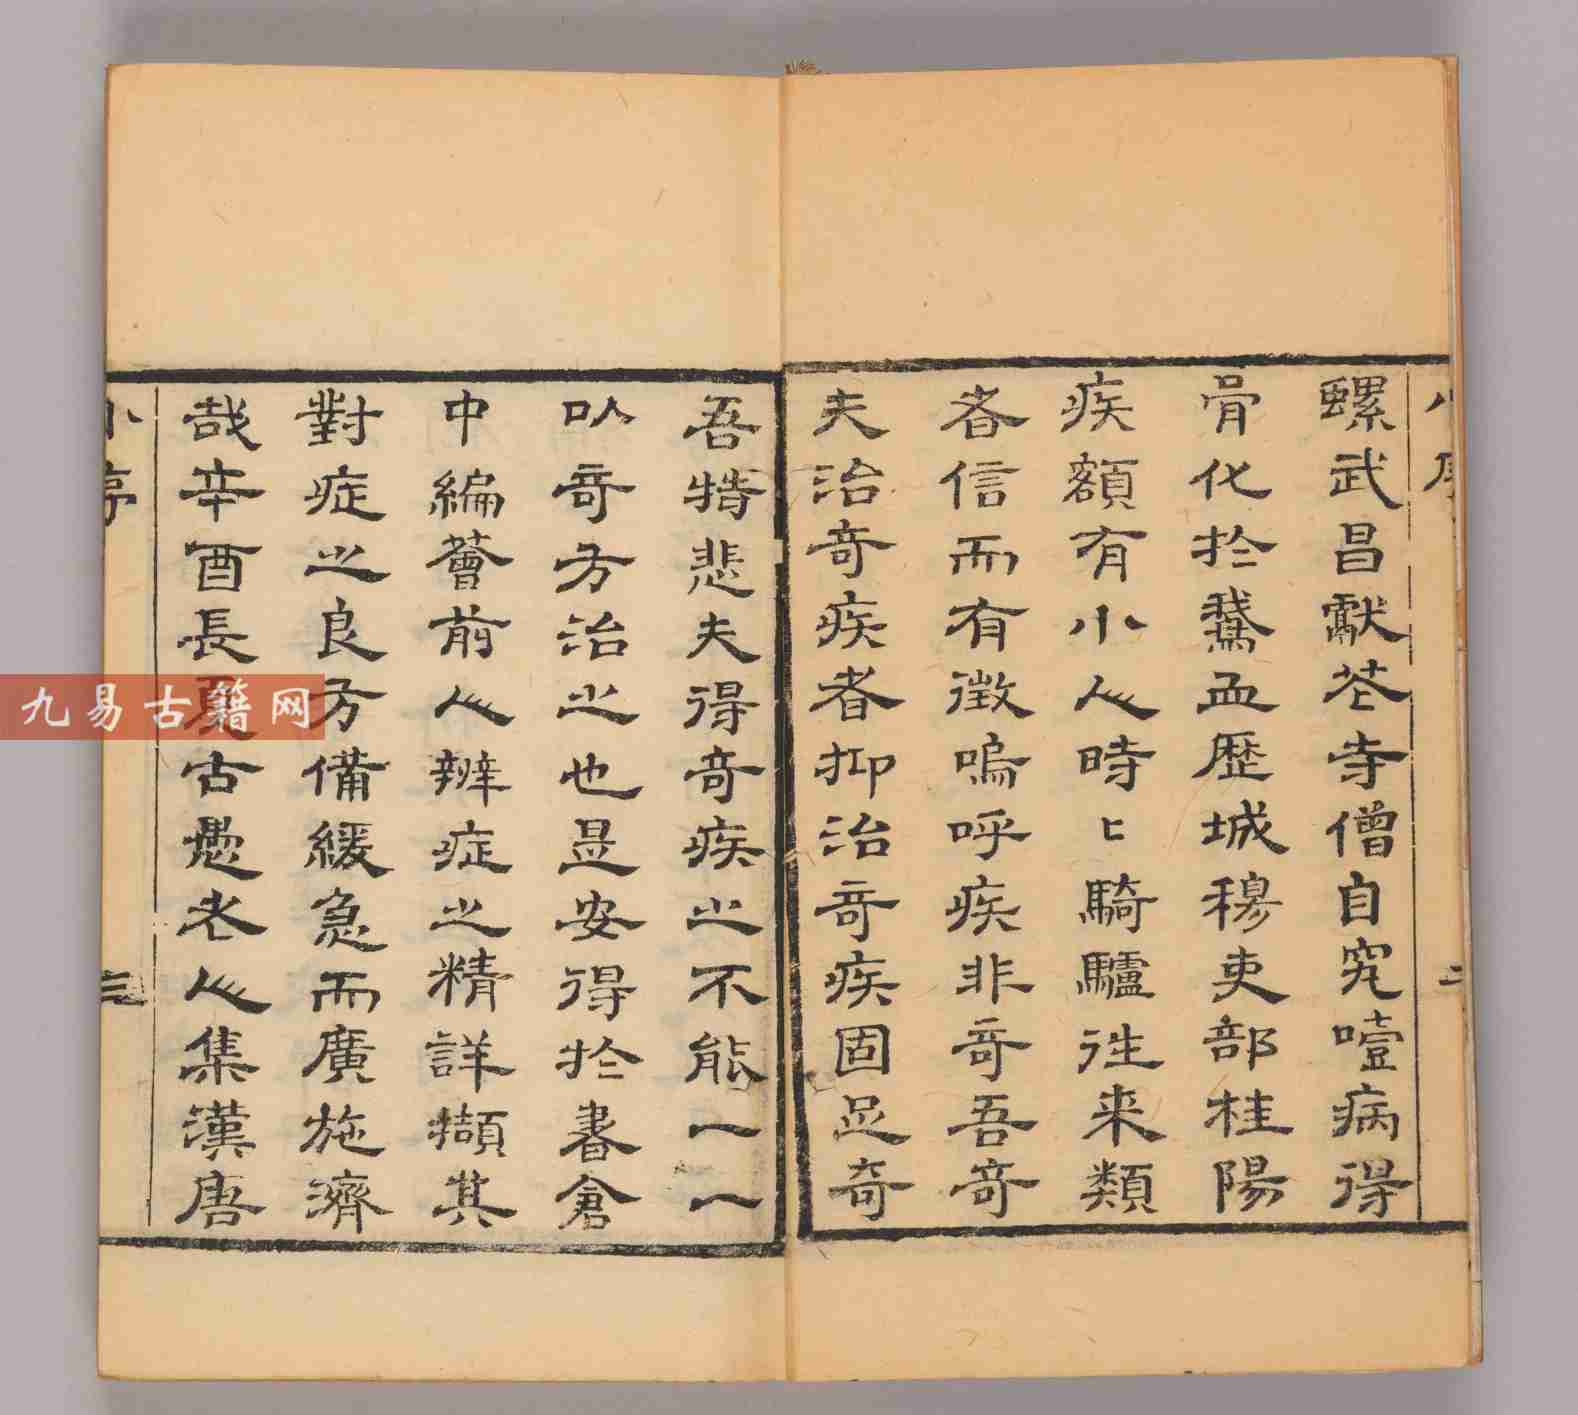 小序 二
螺武昌獻花寺僧自究噎病得
骨化於鵞血歷城穆吏部桂陽
疾額有小人時〻騎驢往来類
者信而有徵嗚呼疾非奇吾奇
夫治奇疾者抑治奇疾固足奇
吾特悲夫得奇疾之不能一一
以奇方治之也是安得於書倉
中編薈前人辨症之精詳擷其
對症之良方備緩急而廣施濟
哉辛酉長夏古愚老人集漢唐
小序 三
九易古籍网